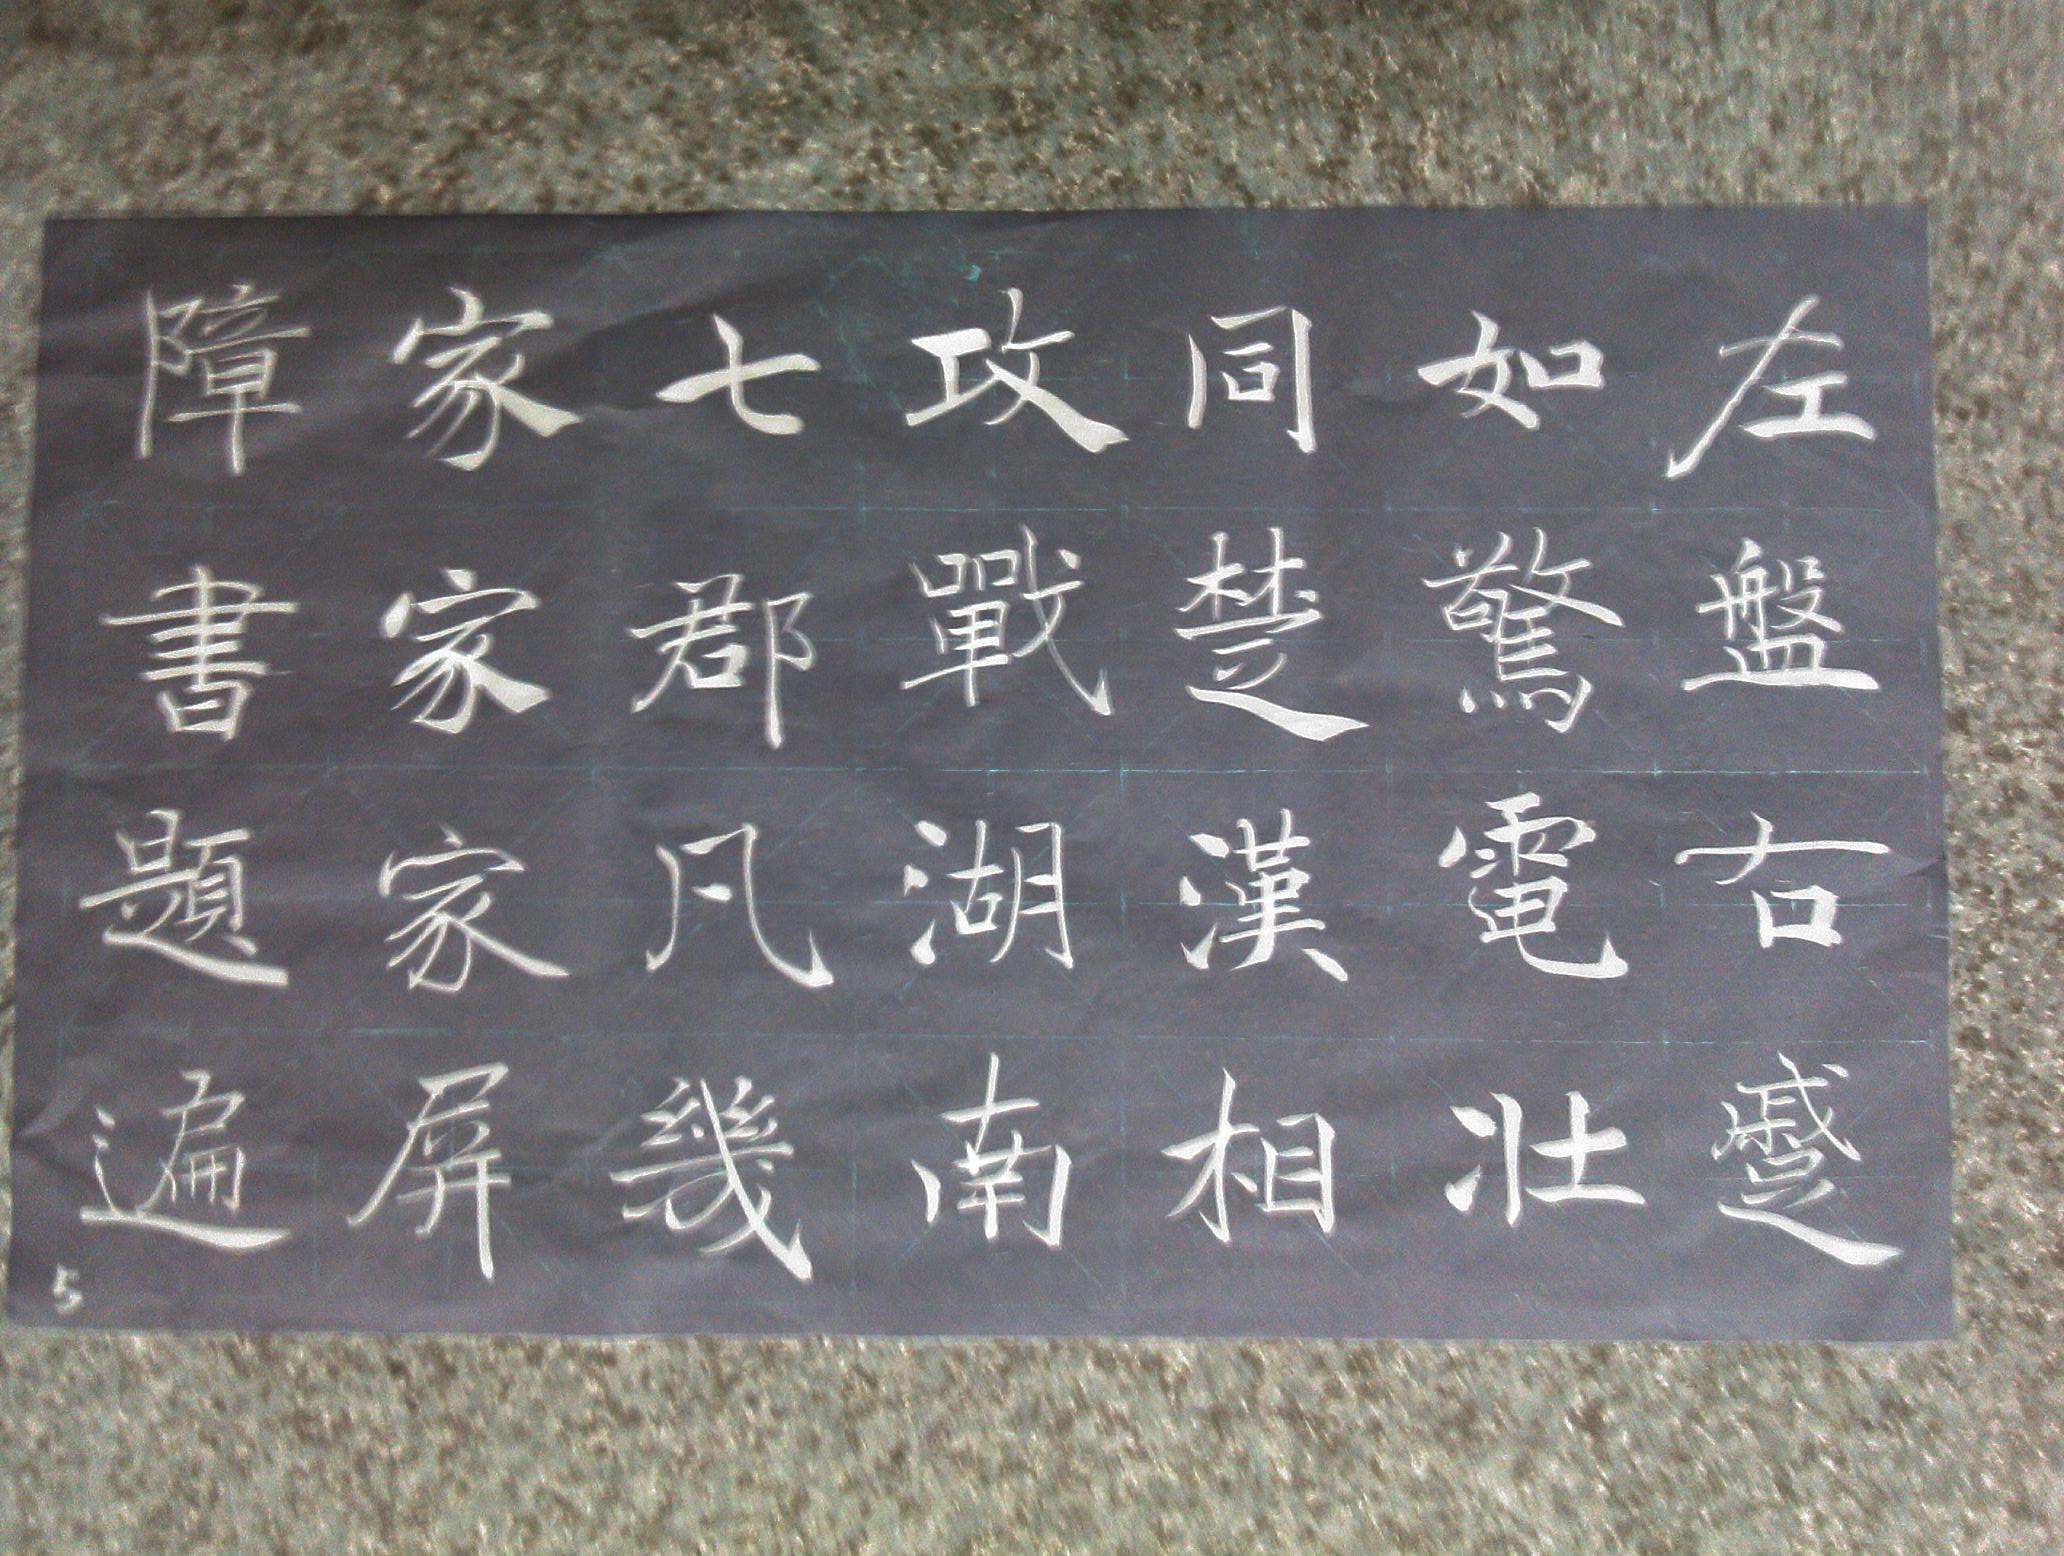 左盤右蹙
如驚電壯
同楚漢相
攻戰湖南
七郡凡幾
家家家屏
障書題遍
5